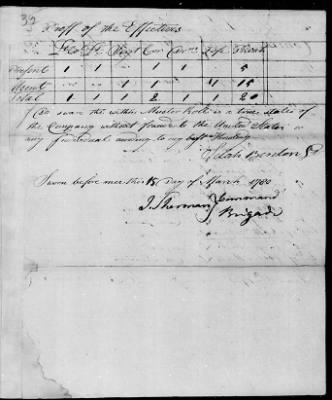 32
Proff of the Effectives
Present 1 1 1 1 1 5
Absent 1 1 1 4 15
Total 1 1 1 2 1 1 20
I do swear the within Muster Roll is a true state of
the Company without fraud to the United States
or any Individual according to my best Knowledge
Selah Benton
Sworn before me this 15 Day of March 1780
J. Sherman Command
Brigade